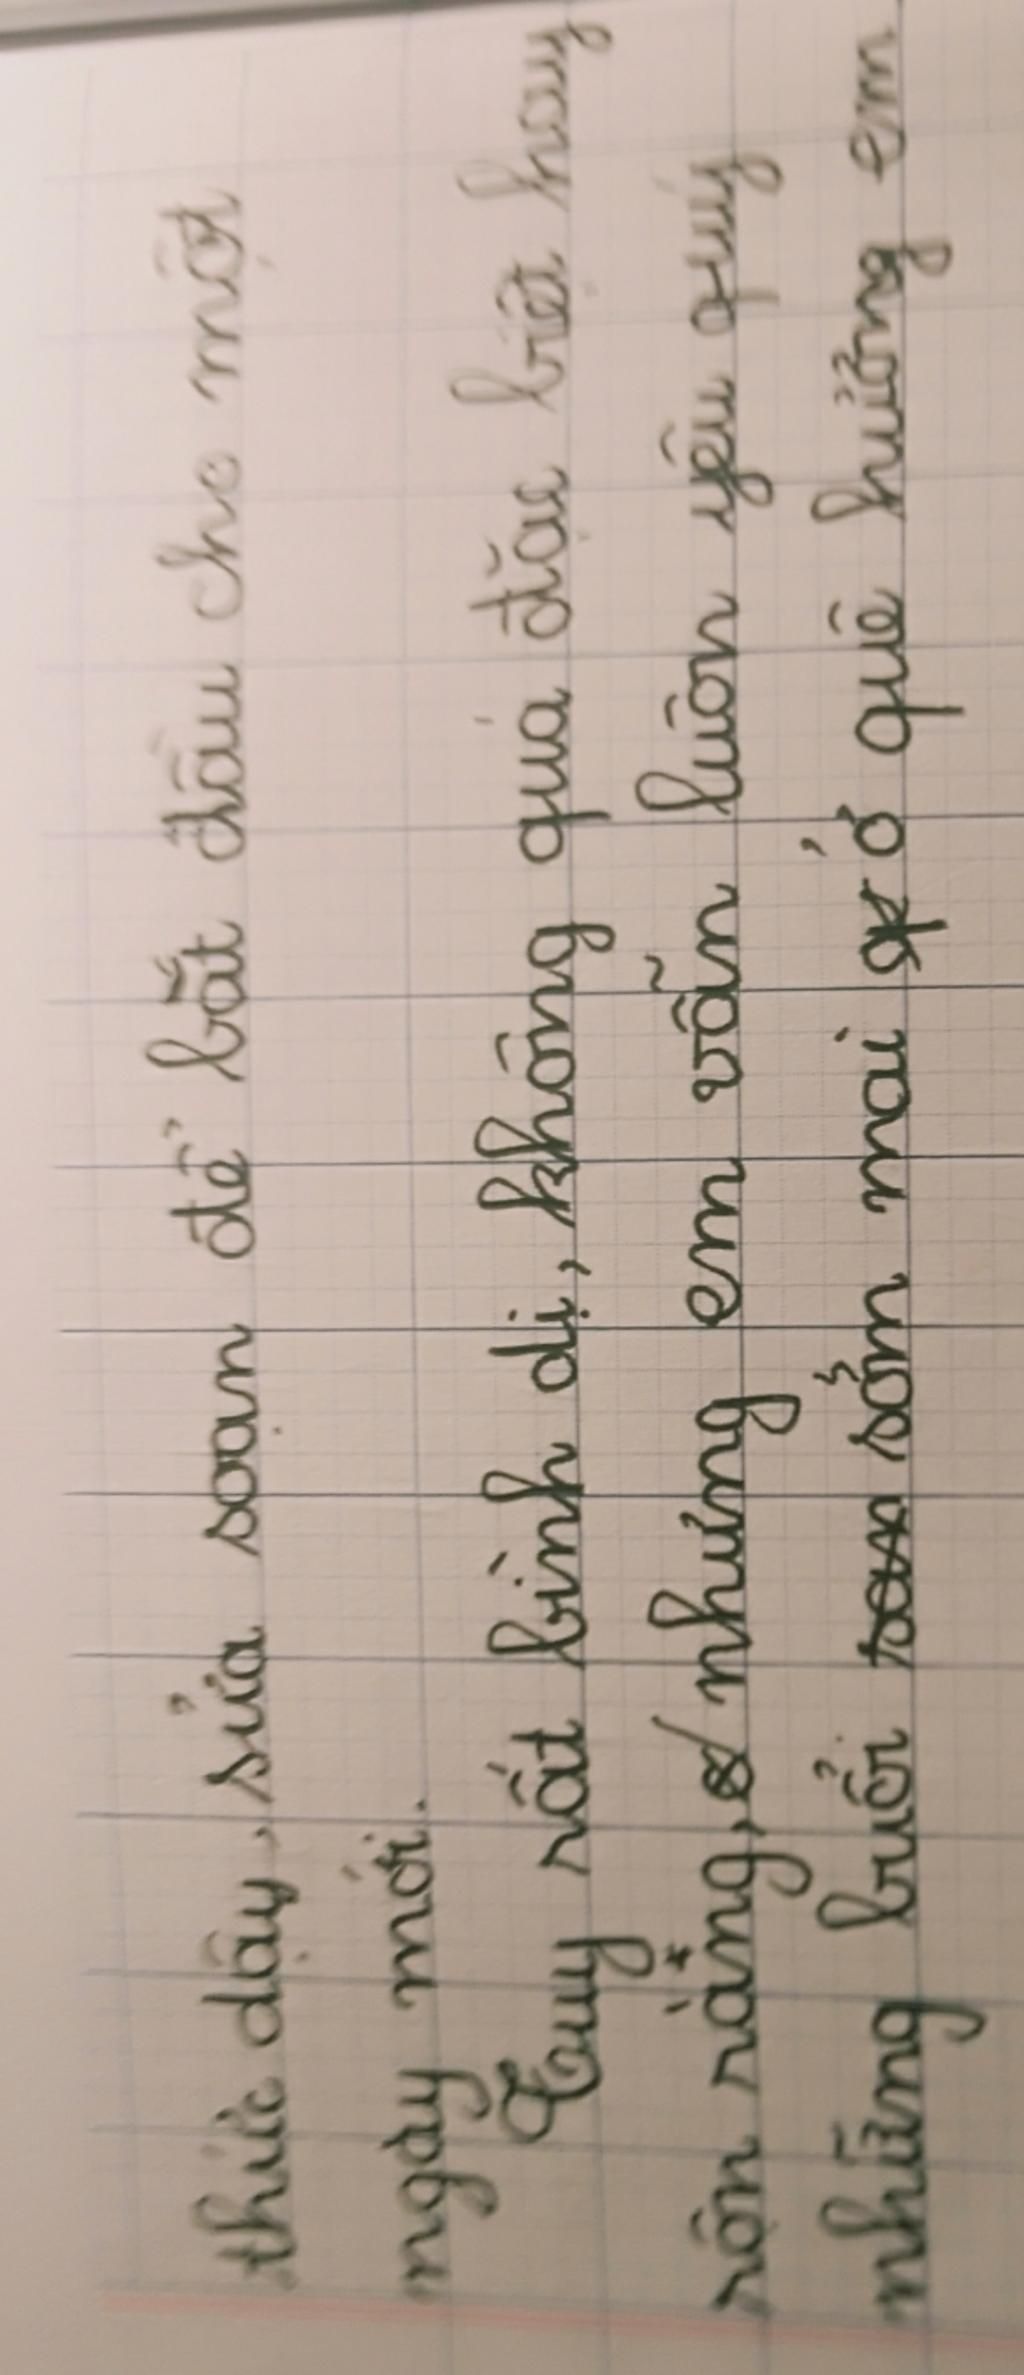 thức dậy, sửa soạn để bắt đầu cho một
ngày mới.
Tuy rất bình dị, không quá đặc biệt hay
rộn ràng, nhưng em vẫn luôn yêu quý
những buổi sớm mai ở quê hương em